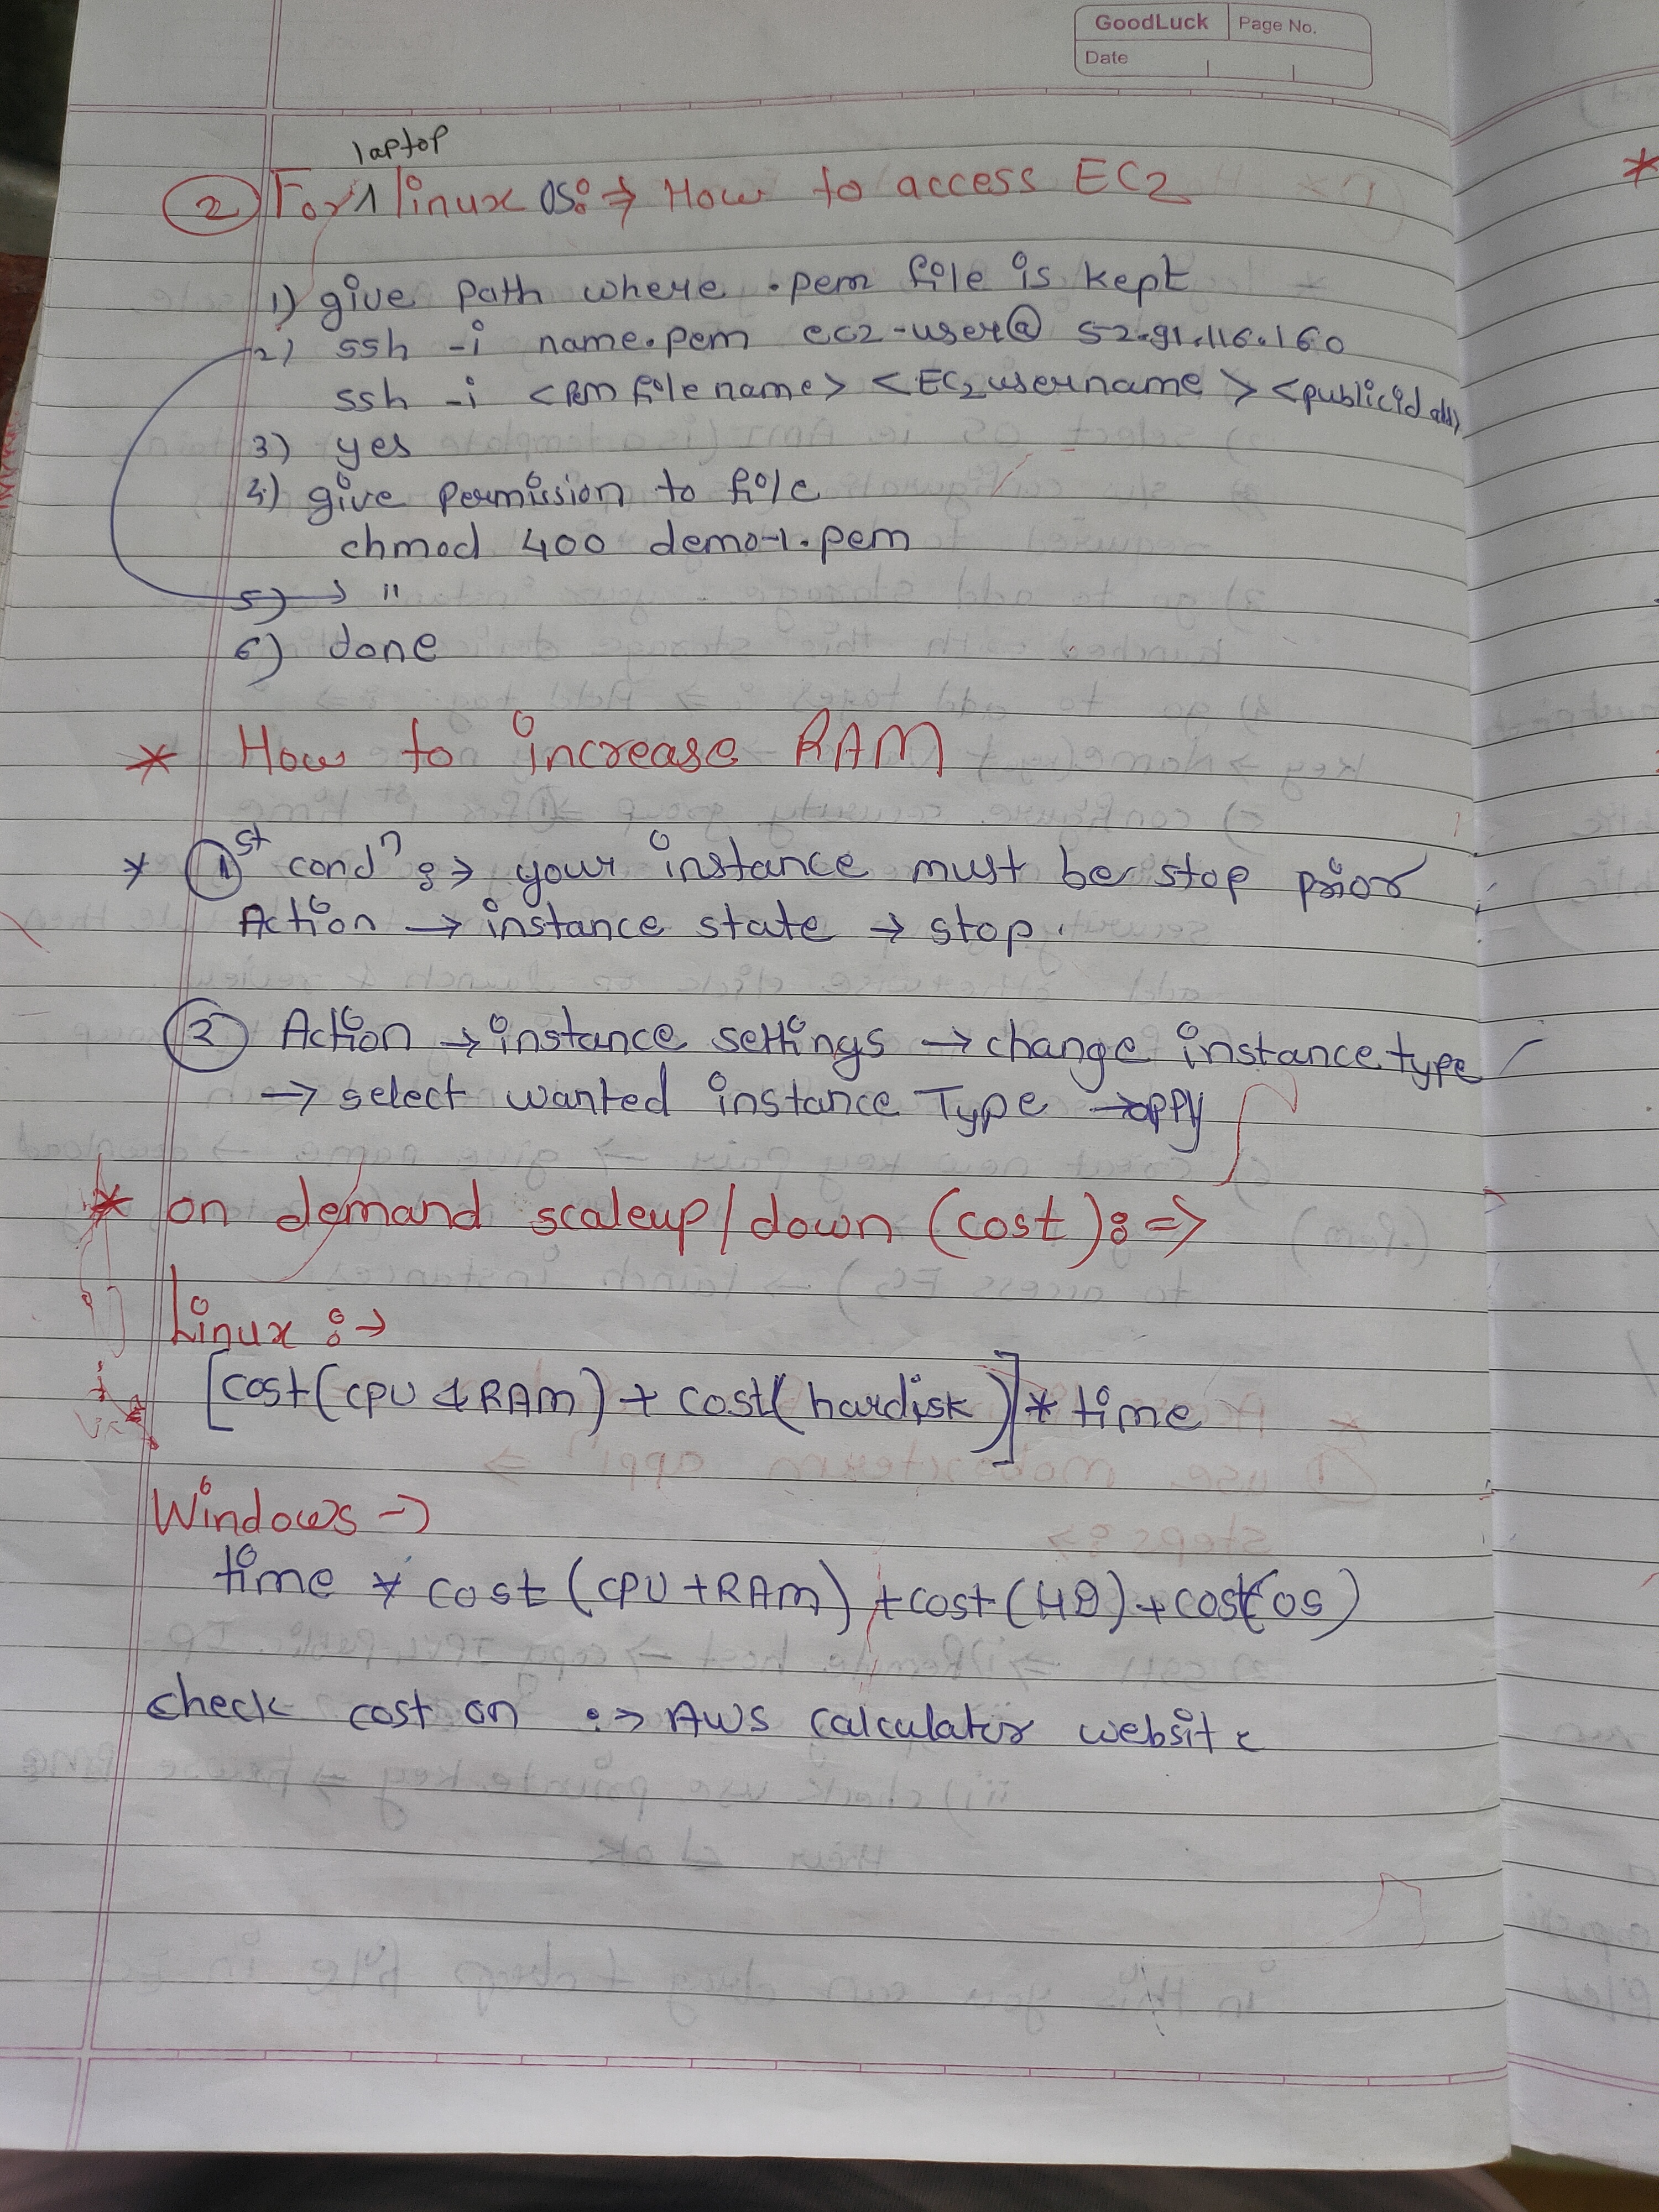 GoodLuck Page No.
Date
laptop
② For ∧ linux OS :⇒ How to access EC2
1) give path where .pem file is kept
2) ssh -i name.pem ec2-user@ 52.91.116.160
ssh -i <pem file name> <EC2 username> <public id add>
3) yes
4) give permission to file
chmod 400 demo-1.pem
5) → "
6) done
* How to increase RAM
* ① st condⁿ :→ your instance must be stop prior
Action → instance state → stop.
② Action → instance settings → change instance type
→ select wanted instance Type → appy
* on demand scaleup/down (cost) :⇒
Linux :→
[cost(CPU & RAM) + cost(hardisk)] * time
Windows →
time * cost (CPU + RAM) + cost (HD) + cost(os)
check cost on :→ AWS calculator website